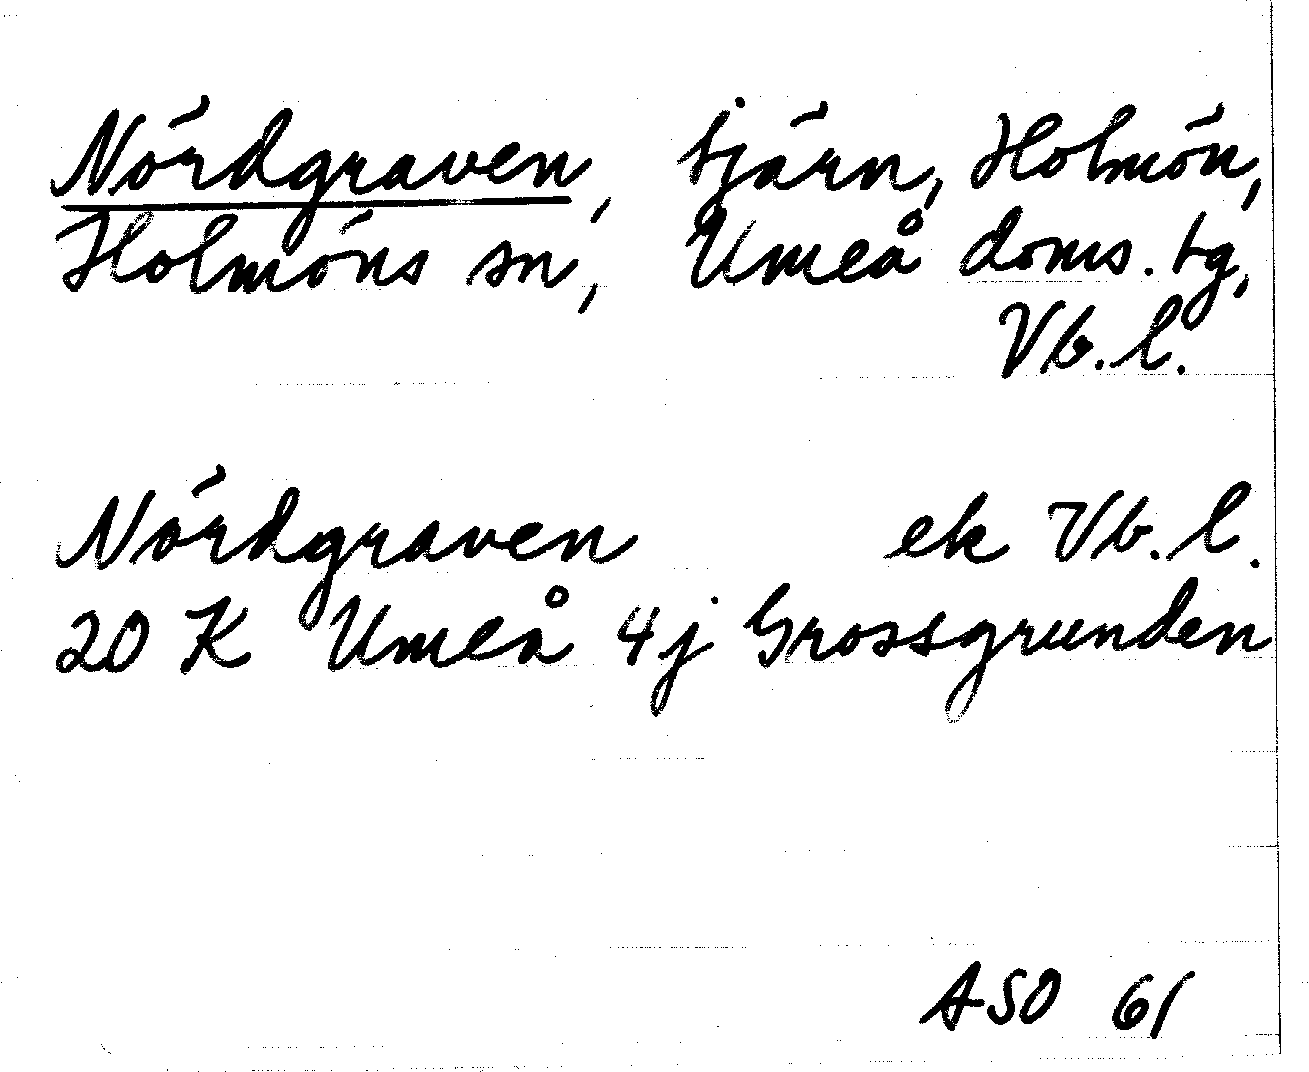 Nördgraven, tjärn, Holmön,
Holmöns sn, Umeå doms. tg,
Vb. l.
Nördgraven ek Vb. l.
20 K Umeå 4j Grossgrunden
ASO 61